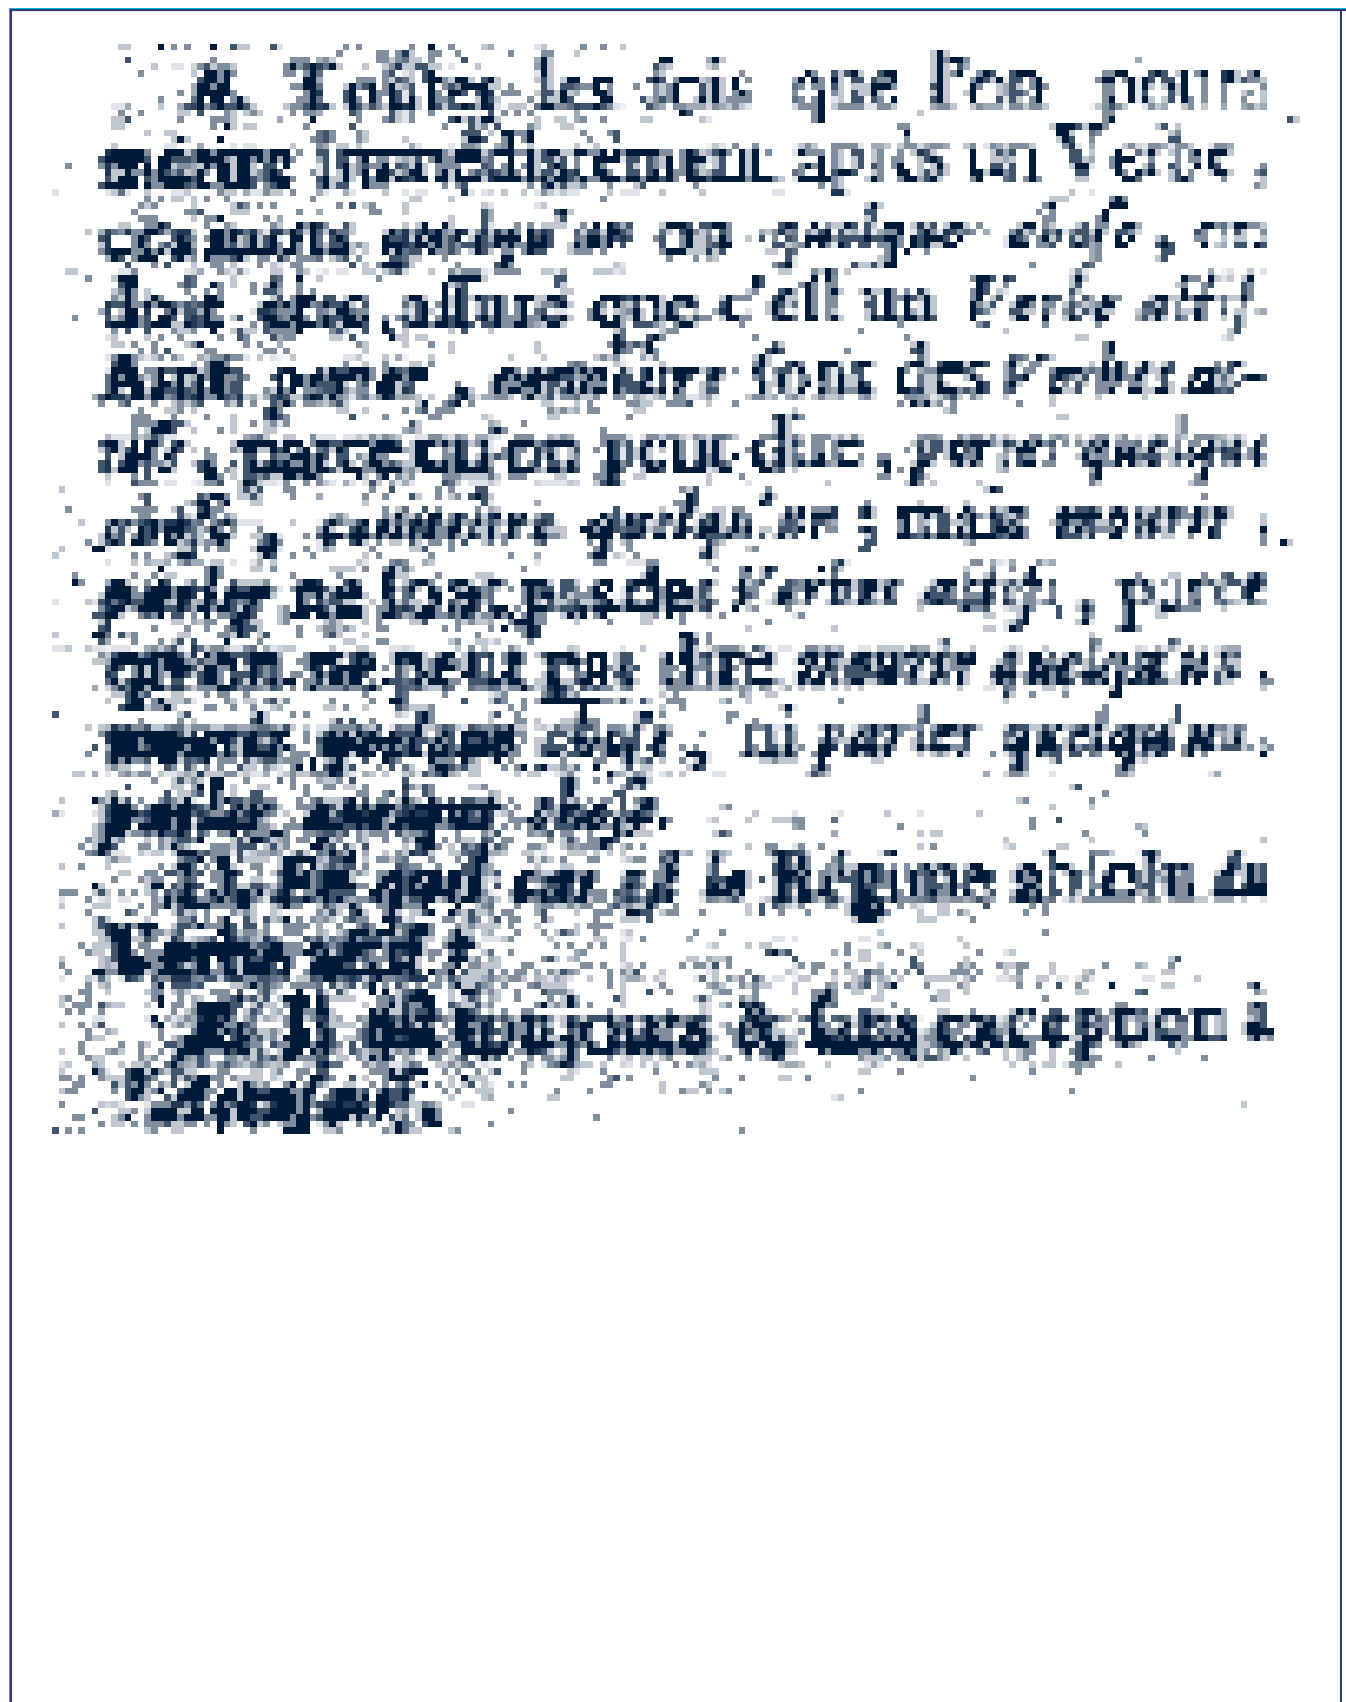 A. Toutes les fois que l'on poura
mettre immédiatement après un Verbe,
ces mots quelqu'un ou quelque chose, on
doit être assuré que c'est un Verbe actif.
Ainsi porter, connoitre sont des Verbes ac-
tifs, parce qu'on peut dire, porter quelque
chose, connoitre quelqu'un ; mais mourir,
parler ne sont pas des Verbes actifs, parce
qu'on ne peut pas dire mourir quelqu'un,
mourir quelque chose, ni parler quelqu'un,
parler quelque chose.
D. En quel cas est le Régime absolu du
Verbe actif ?
R. Il est toujours & sans exception à
l'Accusatif.